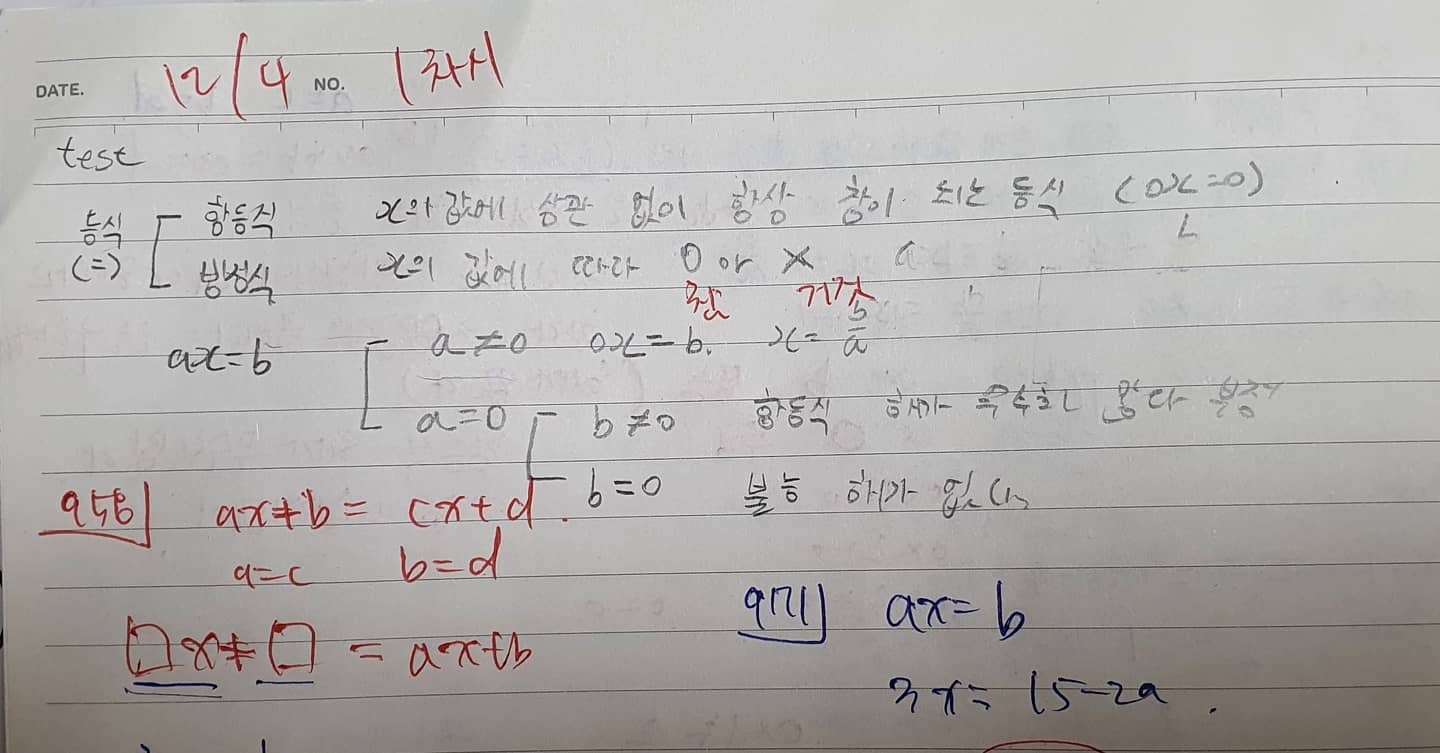 DATE. 12/4 NO. 1차시
test
등식 (=)
항등식 x의 값에 상관 없이 항상 참이 되는 등식 (0x=0)
방정식 x의 값에 따라 O or X
참 거짓
ax=b
a≠0 0x=b. x=b/a
a=0
b≠0 항등식 해가 무수히 많다 부정
b=0 불능 해가 없
956 ax+b = cx+d.
a=c b=d
□x+□ = ax+b
971 ax=b
3x=15-2a.